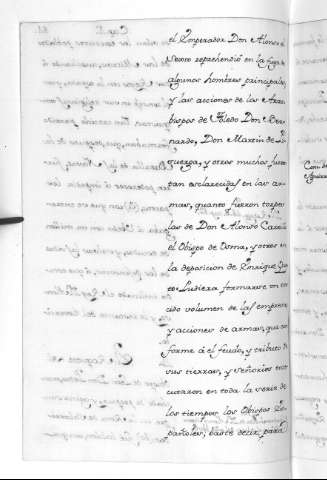 el Emperador Don Alonso el
Sexto reprehendió en la fuga de
algunos hombres principales,
y las acciones de los Arzo
bispos de Toledo Don Ber
nardo, Don Martin de Pi
suerga, y otros muchos fueron
tan esclarecidas en las ar
mas, quanto fueron torpes
las de Don Alonso Carrillo
el Obispo de Osma, y otros en
la deposicion de Enrrique Qu
to. Pudiera formarse un cre
cido volumen de las empresas
y acciones de armas, que con
forme á el feudo, y tributo de
sus tierras, y señorios
cutaron en toda la serie de
los tiempos los Obispos Es
pañoles; baste decir, para